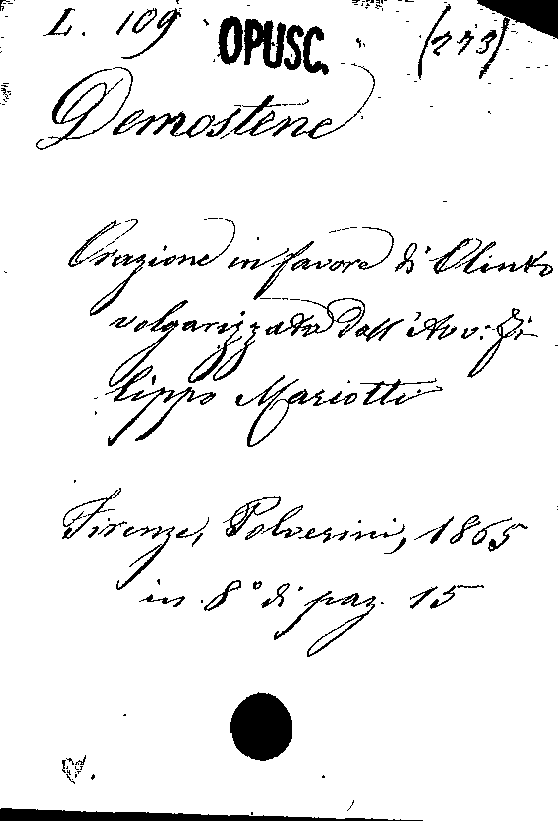 L. 109 OPUSC. (273)
Demostene
Orazione in favore di Olinto
volgarizzata dall'Avv: Fi
lippo Mariotti
Firenze, Polverini, 1865
in 8° di pag. 15